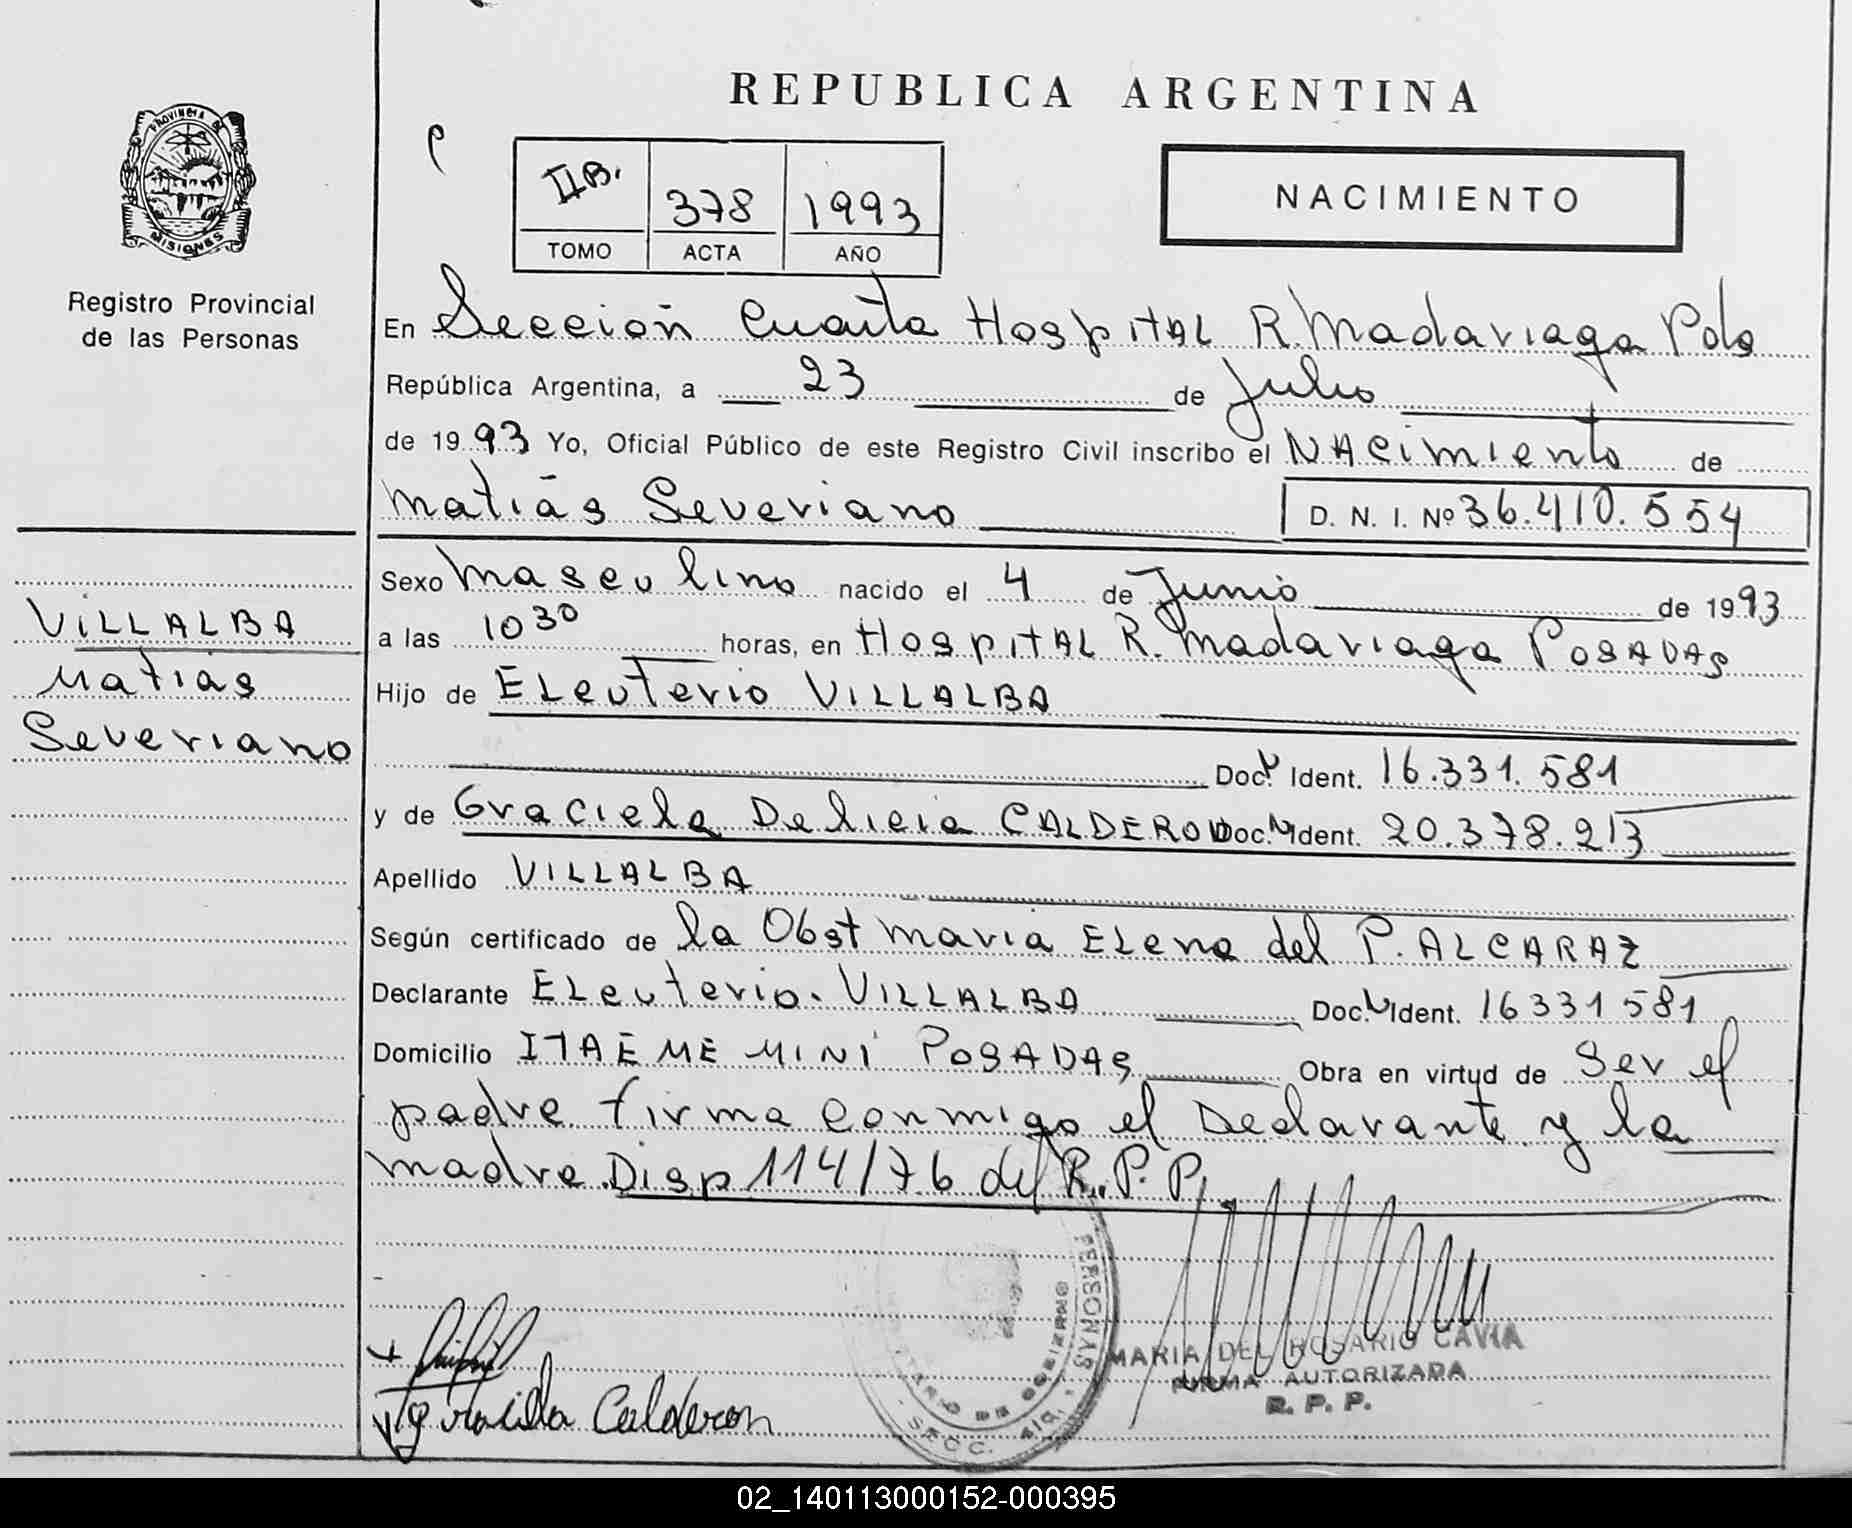 PROVINCIA DE
MISIONES
Registro Provincial
de las Personas
VILLALBA
Matías
Severiano
REPUBLICA ARGENTINA
IIB. 378 1993
TOMO ACTA AÑO
NACIMIENTO
En Sección Cuarta Hospital R. Madariaga Pdas
República Argentina, a 23 de Julio
de 1993 Yo, Oficial Público de este Registro Civil inscribo el Nacimiento de
Matías Severiano D. N. I. Nº 36.410.554
Sexo Masculino nacido el 4 de Junio de 1993
a las 10 30 horas, en Hospital R. Madariaga Posadas
Hijo de Eleuterio VILLALBA
Doc. Ident. 16.331.581
y de Graciela Delicia CALDERON Doc. Ident. 20.378.213
Apellido VILLALBA
Según certificado de la Obst Maria Elena del P. ALCARAZ
Declarante Eleuterio. VILLALBA Doc. Ident. 16331581
Domicilio ITAEME MINI POSADAS Obra en virtud de Ser el
padre firma conmigo el Declarante y la
madre. Disp 114/76 del R.P.P.
MARIA DEL ROSARIO CAVIA
FIRMA AUTORIZADA
R. P. P.
Graciela Calderon
PERSONAS
DE GOBIERNO
SECC. 4ta.
02_140113000152-000395